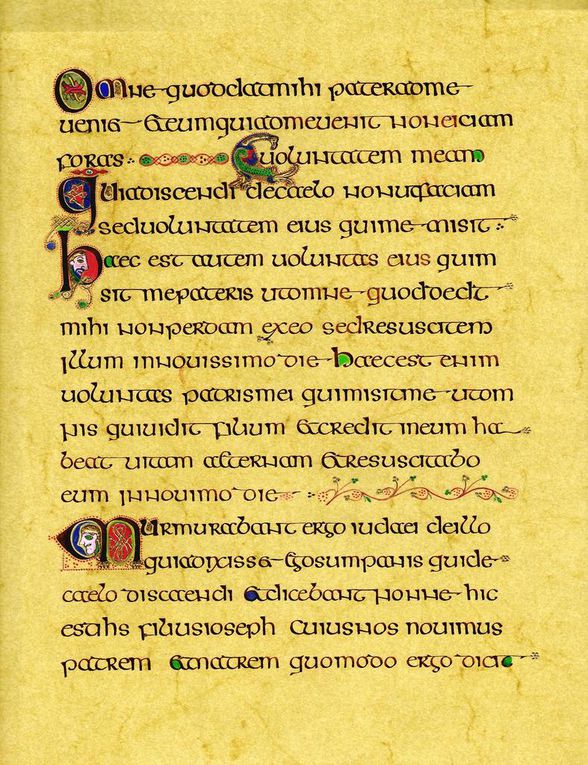 Omne quod dat mihi pater adme
veniæ &eum quiadme venit non eiciam
foras
voluntatem meam
Quia discendi decaelo non ut faciam
sed voluntatem eius qui me misit
haec est autem voluntas eius qui m
sit me pateris ut omne quod dedit
mihi non perdam ex eo sed resuscitem
illum in nouissimo die haec est enim
voluntas patris mei qui misit me ut om
nis qui uidit filium & credit in eum ha
beat uitam aeternam & resuscitabo
eum in nouimo die
Murmurabant ergo iudaei de illo
quia dixisse Ego sum panis qui de
caelo discendi & dicebant nonne hic
est ihs filius ioseph cuius nos nouimus
patrem & matrem quomodo ergo dicit